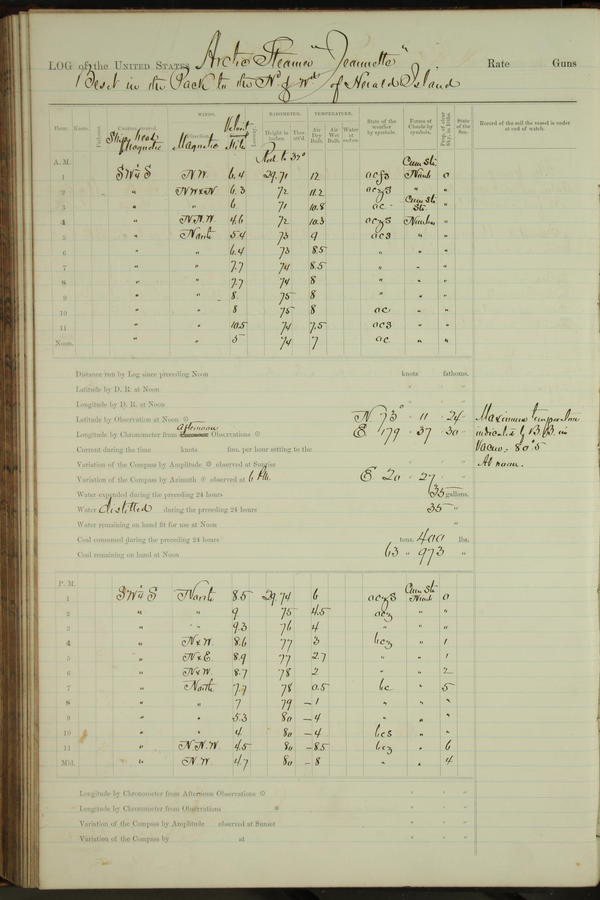 LOG of the UNITED STATES Arctic Steamer "Jeannette" Rate Guns
Beset in the Pack to the Nd & Wd of Herald Island
WINDS. BAROMETER. TEMPERATURE.
Hour. Knots. Courses steered. Direction. Velocity Leeway. Height in inches. Ther. att'd. Air Dry Bulb. Air Wet Bulb. Water at surface. State of the weather by symbols. Forms of Clouds by symbols. Prop. of clear Sky, in tenths. State of the Sea. Record of the sail the vessel is under at end of watch.
Ship's head Magnetic Magnetic Miles
Red. to 32°
A. M. Cum Sti
1 SW¼S N.W. 6.4 29.71 12 Nimb 0
2 " NW×N 6.3 72 11.2 " "
3 " " 6 71 10.8 oc Cum Sti Sti "
4 " N.N.W. 4.6 72 10.3 Nimbus "
5 " North 5.4 73 9 ocs " "
6 " " 6.4 73 8.5 " " "
7 " " 7.7 74 8.5 " " "
8 " " 7.7 74 8 " " "
9 " " 8 75 8 " " "
10 " " 8 75 8 oc " "
11 " " 10.5 74 7.5 ocs " "
Noon. " " 5 74 7 oc " "
Distance run by Log since preceding Noon knots fathoms.
Latitude by D. R. at Noon
Longitude by D. R. at Noon
Latitude by Observation at Noon N 73° 11 24
Longitude by Chronometer from afternoon Observations E 179 37 30
Maximum temperature
indicated by B.B. in
Vacuo - 80°5
At noon.
Current during the time knots fms. per hour setting to the
Variation of the Compass by Amplitude observed at Sunrise
Variation of the Compass by Azimuth observed at 6 P.M. E 20 27
Water expended during the preceding 24 hours 35 gallons.
Water distilled during the preceding 24 hours 35 "
Water remaining on hand fit for use at Noon "
Coal consumed during the preceding 24 hours tons. 400 lbs.
Coal remaining on hand at Noon 63 " 973 "
P. M. Cum Sti
1 SW¼S North 8.5 29.74 6 Nimb 0
2 " " 9 75 4.5 " "
3 " " 9.3 76 4 " " "
4 " N×W. 8.6 77 3 " 1
5 " N×E. 8.9 77 2.7 " " 1
6 " N×W. 8.7 78 2 " " 2
7 " North 7.7 78 0.5 bc " 5
8 " " 7 79 -1 " " "
9 " " 5.3 80 -4 " " "
10 " " 4 80 -4 bcs " "
11 " N.N.W. 4.5 80 -8.5 " 6
Mid. " N.W. 4.7 80 -8 " " 4
Longitude by Chronometer from Afternoon Observations
Longitude by Chronometer from Observations
Variation of the Compass by Amplitude observed at Sunset
Variation of the Compass by at